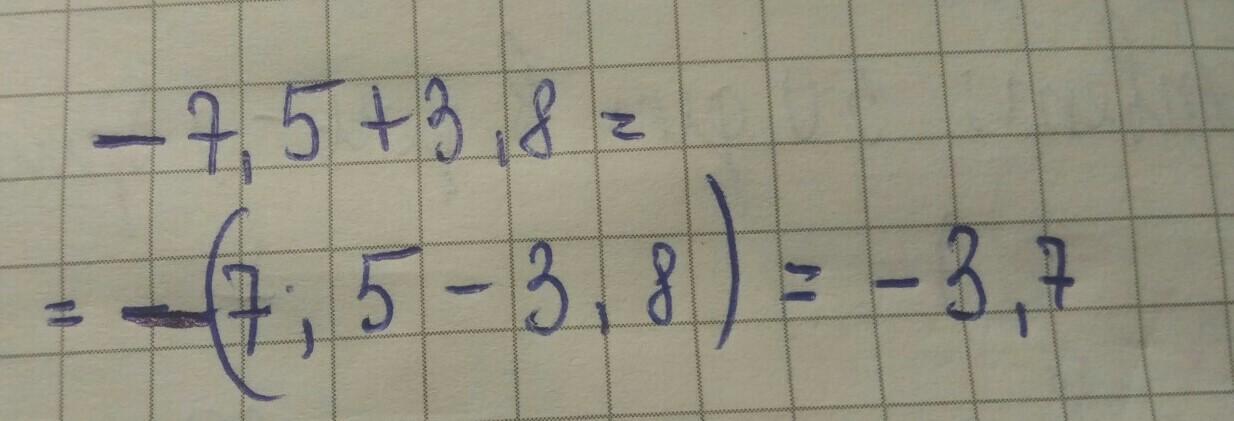 -7,5+3,8=
=-(7,5-3,8)=-3,7